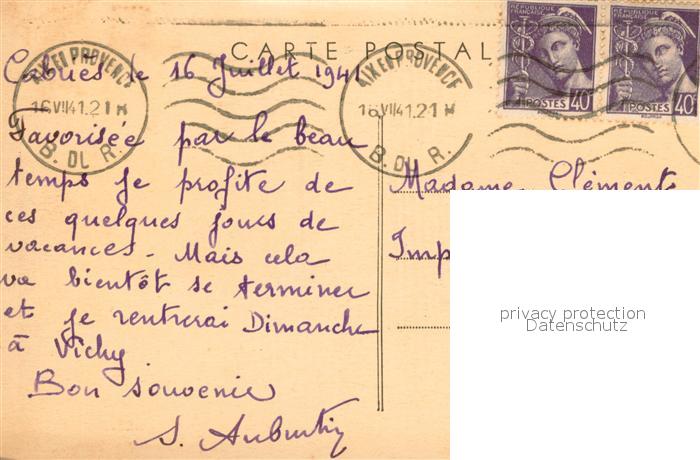 CARTE POSTAL
RÉPUBLIQUE FRANÇAISE
POSTES 40c
RÉPUBLIQUE FRANÇAISE
POSTES 40c
AIX EN PROVENCE
16 VII 41.21 H
B. DU R.
AIX EN PROVENCE
16 VII 41.21 H
B. DU R.
Cabriès le 16 Juillet 1941
Favorisée par le beau
temps je profite de
ces quelques jours de
vacances. Mais cela
va bientôt se terminer
et je rentrerai Dimanche
à Vichy
Bon souvenir
S.
Madame Clément
Imp
privacy protection
Datenschutz